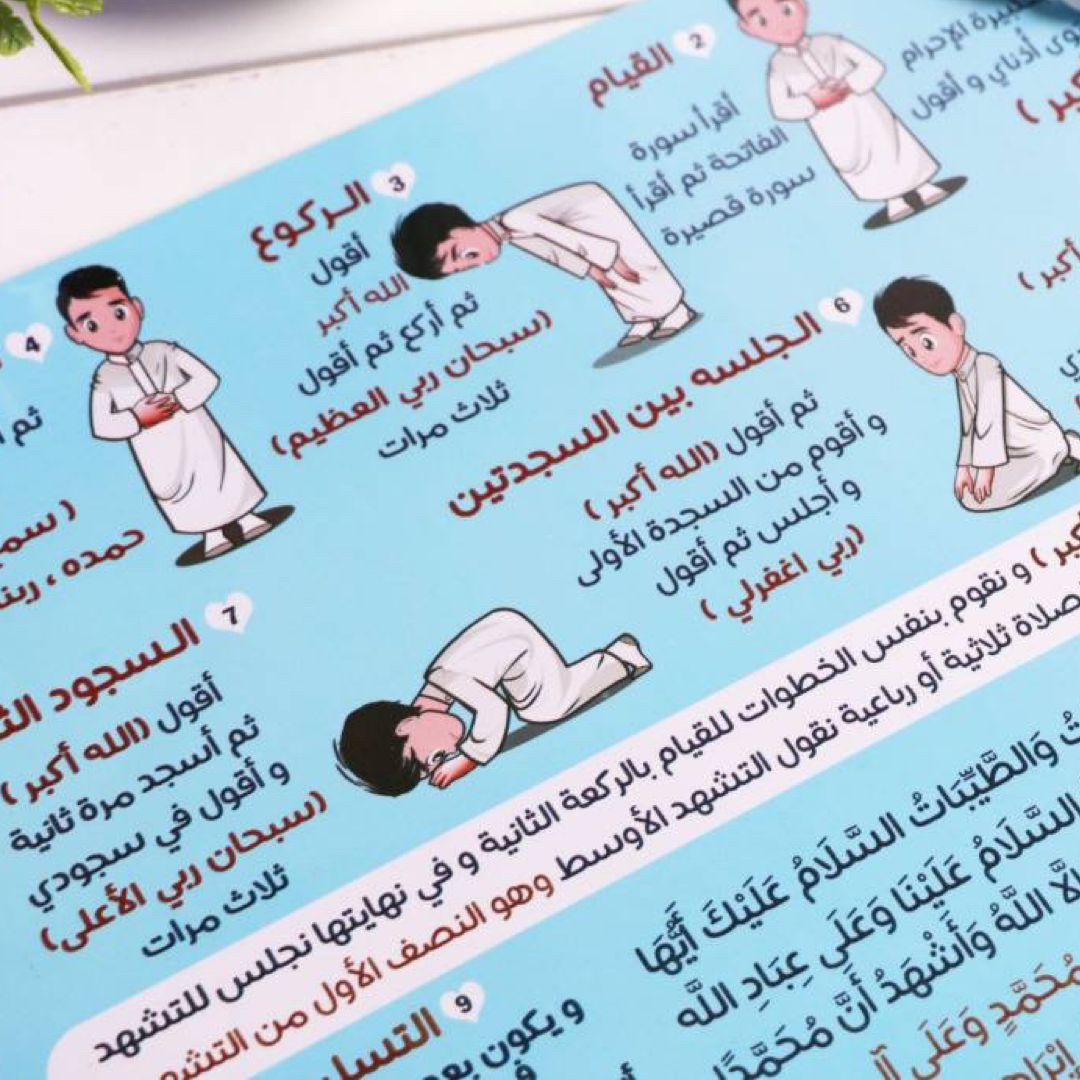 الإحرام
أدناي و أقول
2 القيام
أقرأ سورة
الفاتحة ثم أقرأ
سورة قصيرة
3 الركوع
أقول
الله أكبر
ثم أركع ثم أقول
(سبحان ربي العظيم)
ثلاث مرات
4
ثم
حمده ، ربنا
أكبر )
6 الجلسه بين السجدتين
ثم أقول (الله أكبر )
و أقوم من السجدة الأولى
و أجلس ثم أقول
(ربي اغفرلي )
7 السجود
أقول (الله أكبر )
ثم أسجد مرة ثانية
و أقول في سجودي
(سبحان ربي الأعلى)
ثلاث مرات
) و نقوم بنفس الخطوات للقيام بالركعة الثانية و في نهايتها نجلس للتشهد
صلاة ثلاثية أو رباعية نقول التشهد الأوسط وهو النصف الأول من
وَالطَّيِّبَاتُ السَّلَامُ عَلَيْكَ أَيُّهَا
السَّلَامُ عَلَيْنَا وَعَلَى عِبَادِ اللَّه
اللَّهُ وَأَشْهَدُ أَنَّ مُحَمَّدًا
مُحَمَّدٍ وَعَلَى
9
و يكون